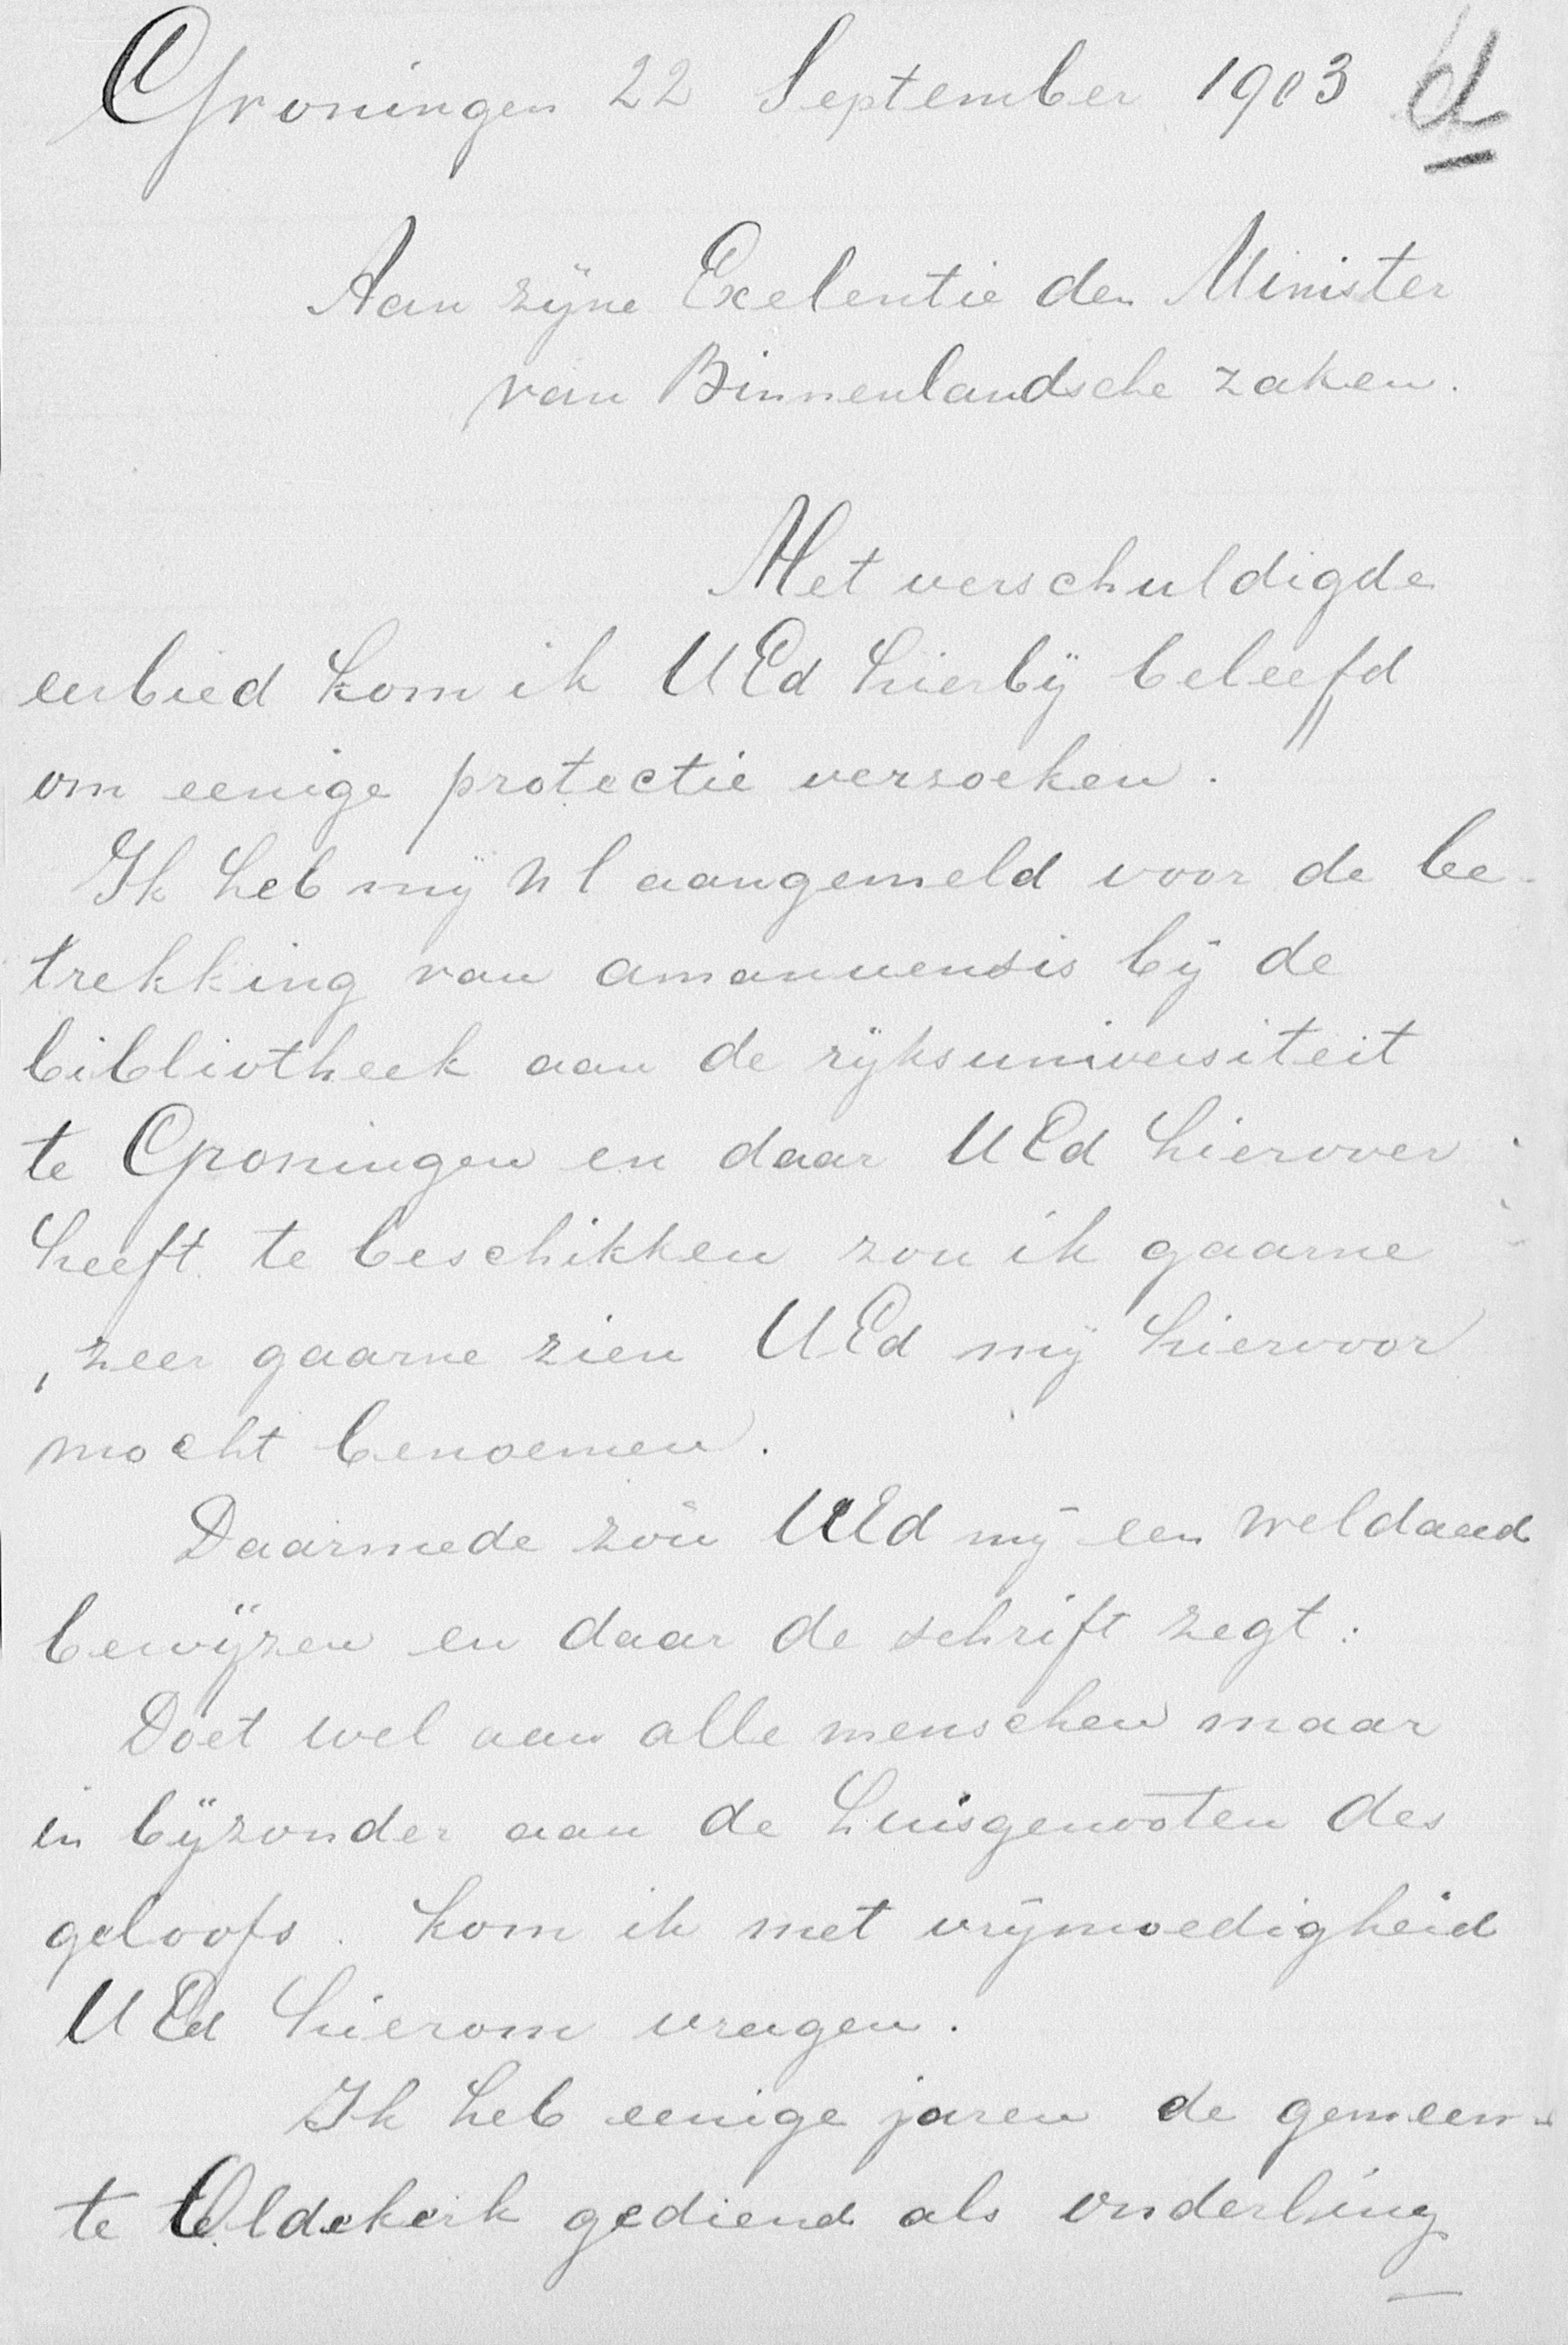 Groningen 22 September 1903 d
Aan zijne Exelentie den Minister
van Binnenlandsche zaken.
Met verschuldigde
eerbied kom ik UEd hierbij beleefd
om eenige protectie verzoeken.
Ik heb mij nl aangemeld voor de be-
trekking van amanuensis bij de
bibliotheek aan de rijksuniversiteit
te Groningen en daar UEd hierover
heeft te beschikken zou ik gaarne
, zeer gaarne zien UEd mij hiervoor
mocht benoemen.
Daarmede zou UEd mij een weldaad
bewijzen en daar de schrift zegt:
Doet wel aan alle menschen maar
in bijzonder aan de huisgenooten des
geloofs. kom ik met vrijmoedigheid
UEd hierom vragen.
Ik heb eenige jaren de gemeen-
te Oldekerk gediend als onderling